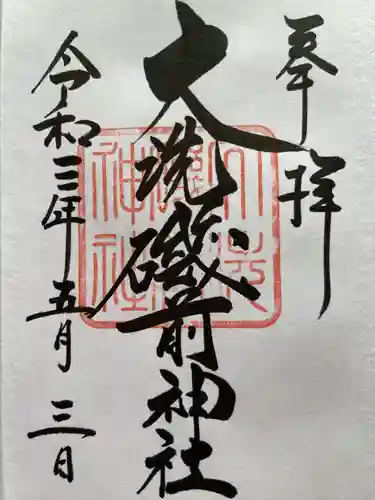 奉拝
大洗磯前神社
令和三年五月三日
大洗磯前神社